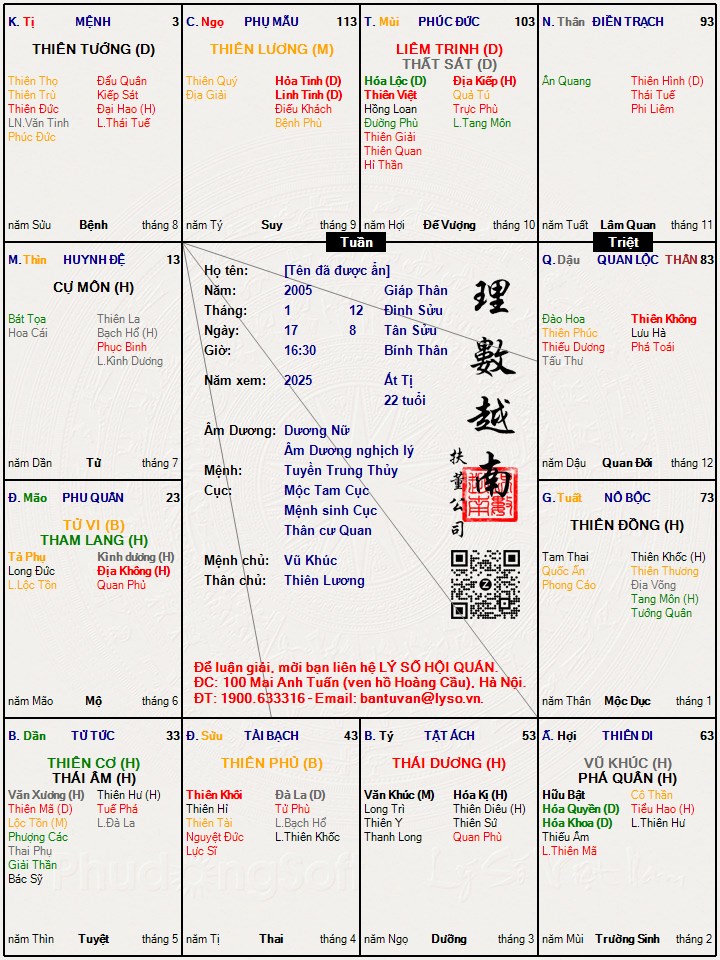 K. Tị MỆNH 3
THIÊN TƯỚNG (D)
Thiên Thọ Đẩu Quân
Thiên Trù Kiếp Sát
Thiên Đức Đại Hao (H)
LN.Văn Tinh L.Thái Tuế
Phúc Đức
năm Sửu Bệnh tháng 8
C. Ngọ PHỤ MẪU 113
THIÊN LƯƠNG (M)
Thiên Quý Hỏa Tinh (D)
Địa Giải Linh Tinh (D)
Điếu Khách
Bệnh Phù
năm Tý Suy tháng 9
T. Mùi PHÚC ĐỨC 103
LIÊM TRINH (D)
THẤT SÁT (D)
Hóa Lộc (D) Địa Kiếp (H)
Thiên Việt Quả Tú
Hồng Loan Trực Phù
Đường Phù L.Tang Môn
Thiên Giải
Thiên Quan
Hỉ Thần
năm Hợi Đế Vượng tháng 10
N. Thân ĐIỀN TRẠCH 93
Ân Quang Thiên Hình (D)
Thái Tuế
Phi Liêm
năm Tuất Lâm Quan tháng 11
Tuần
Triệt
M. Thìn HUYNH ĐỆ 13
CỰ MÔN (H)
Bát Tọa Thiên La
Hoa Cái Bạch Hổ (H)
Phục Binh
L.Kình Dương
năm Dần Tử tháng 7
Họ tên: [Tên đã được ẩn]
Năm: 2005 Giáp Thân
Tháng: 1 12 Đinh Sửu
Ngày: 17 8 Tân Sửu
Giờ: 16:30 Bính Thân
Năm xem: 2025 Ất Tị
22 tuổi
Âm Dương: Dương Nữ
Âm Dương nghịch lý
Mệnh: Tuyền Trung Thủy
Cục: Mộc Tam Cục
Mệnh sinh Cục
Thân cư Quan
Mệnh chủ: Vũ Khúc
Thân chủ: Thiên Lương
理數越南
扶董公司
Để luận giải, mời bạn liên hệ LÝ SỐ HỘI QUÁN.
ĐC: 100 Mai Anh Tuấn (ven hồ Hoàng Cầu), Hà Nội.
ĐT: 1900.633316 - Email: bantuvan@lyso.vn.
Q. Dậu QUAN LỘC THÂN 83
Đào Hoa Thiên Không
Thiên Phúc Lưu Hà
Thiếu Dương Phá Toái
Tấu Thư
năm Dậu Quan Đới tháng 12
Đ. Mão PHU QUÂN 23
TỬ VI (B)
THAM LANG (H)
Tả Phụ Kình dương (H)
Long Đức Địa Không (H)
L.Lộc Tồn Quan Phủ
năm Mão Mộ tháng 6
G. Tuất NÔ BỘC 73
THIÊN ĐỒNG (H)
Tam Thai Thiên Khốc (H)
Quốc Ấn Thiên Thương
Phong Cáo Địa Võng
Tang Môn (H)
Tướng Quân
năm Thân Mộc Dục tháng 1
B. Dần TỬ TỨC 33
THIÊN CƠ (H)
THÁI ÂM (H)
Văn Xương (H) Thiên Hư (H)
Thiên Mã (D) Tuế Phá
Lộc Tồn (M) L.Đà La
Phượng Các
Thai Phụ
Giải Thần
Bác Sỹ
năm Thìn Tuyệt tháng 5
Đ. Sửu TÀI BẠCH 43
THIÊN PHỦ (B)
Thiên Khôi Đà La (D)
Thiên Hỉ Tử Phù
Thiên Tài L.Bạch Hổ
Nguyệt Đức L.Thiên Khốc
Lực Sĩ
năm Tị Thai tháng 4
B. Tý TẬT ÁCH 53
THÁI DƯƠNG (H)
Văn Khúc (M) Hóa Kị (H)
Long Trì Thiên Diêu (H)
Thiên Y Thiên Sứ
Thanh Long Quan Phù
năm Ngọ Dưỡng tháng 3
Ấ. Hợi THIÊN DI 63
VŨ KHÚC (H)
PHÁ QUÂN (H)
Hữu Bật Cô Thần
Hóa Quyền (D) Tiểu Hao (H)
Hóa Khoa (D) L.Thiên Hư
Thiếu Âm
L.Thiên Mã
năm Mùi Trường Sinh tháng 2